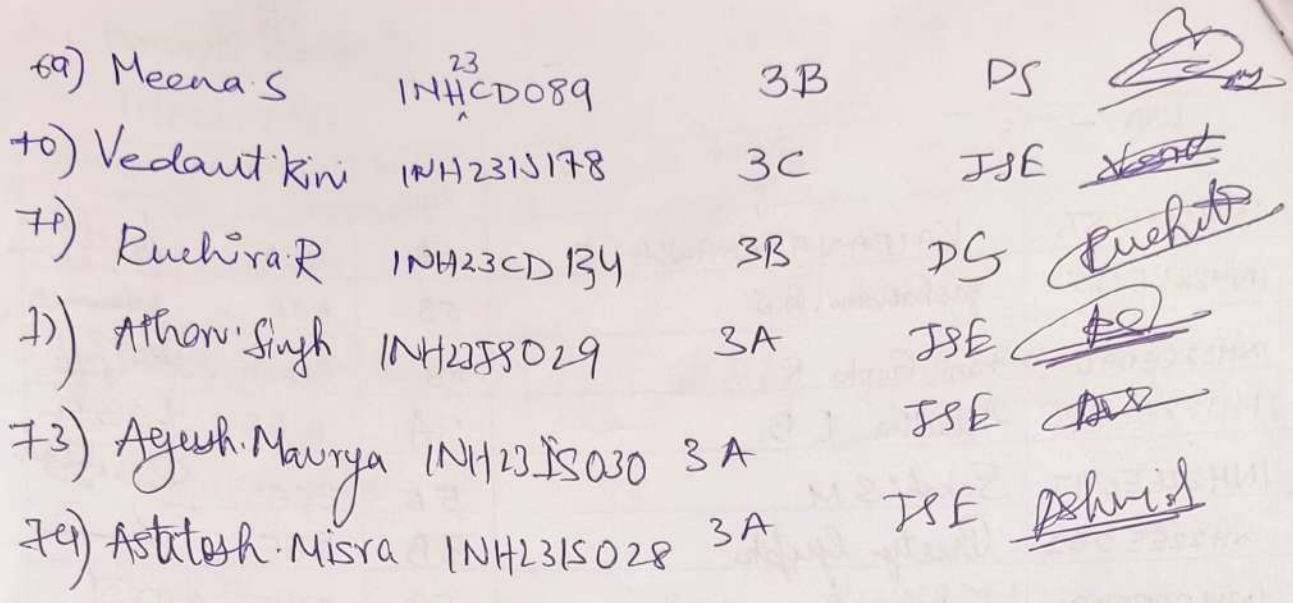 69) Meena.S 1NH23CD089 3B DS
70) Vedant Kini 1NH23IS178 3C ISE
71) Ruchira.R 1NH23CD134 3B DS Ruchit
72) Atharv.Singh 1NH23IS029 3A ISE
73) Ayush.Maurya 1NH23IS030 3A ISE
74) Astitosh.Misra 1NH23IS028 3A ISE